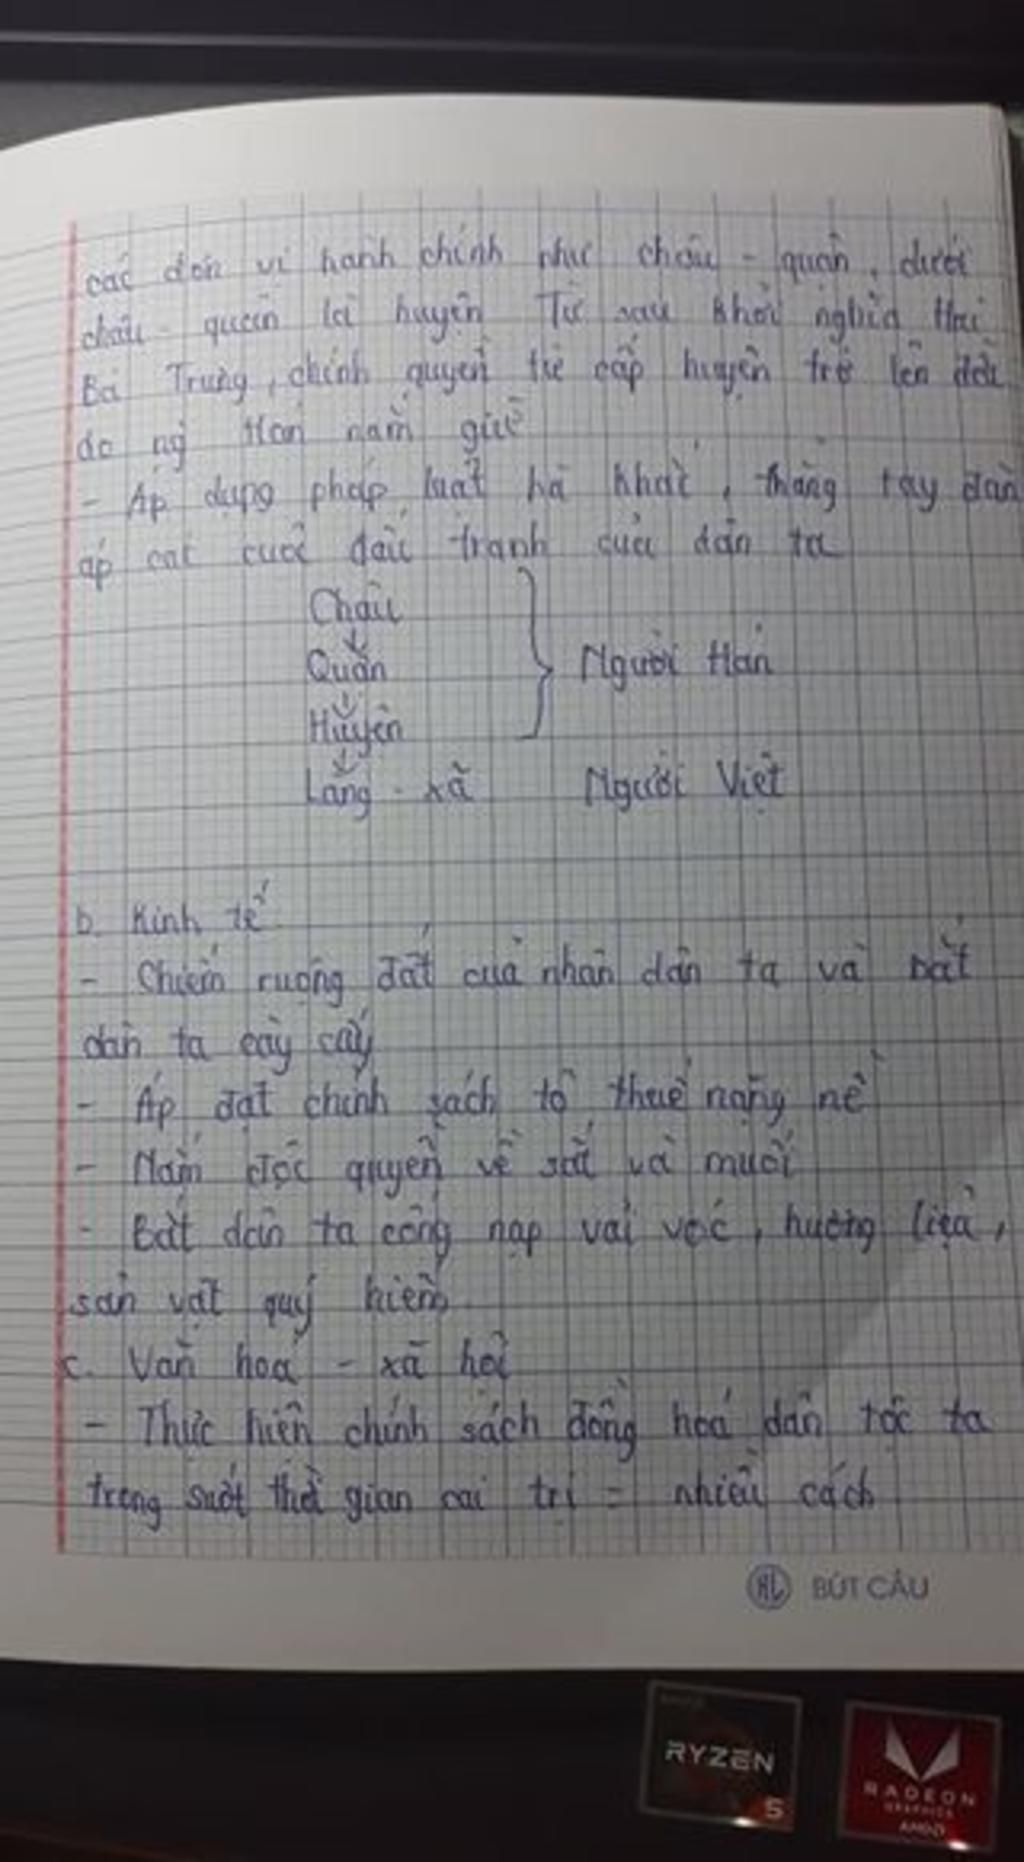 các đơn vị hành chính như châu - quận, dưới
châu - quận là huyện Từ sau khởi nghĩa Hai
Bà Trưng, chính quyền từ cấp huyện trở lên đều
do ng Hán nắm giữ
- Áp dụng pháp luật hà khắc, thẳng tay đàn
áp các cuộc đấu tranh của dân ta
Châu
↓
Quận } Người Hán
↓
Huyện
↓
Làng - xã Người Việt
b. Kinh tế
- Chiếm ruộng đất của nhân dân ta và bắt
dân ta cày cấy
- Áp đặt chính sách tô thuế nặng nề
- Nắm độc quyền về sắt và muối
- Bắt dân ta cống nạp vải vóc, hương liệu,
sản vật quý hiếm
c. Văn hoá - xã hội
- Thực hiện chính sách đồng hoá dân tộc ta
trong suốt thời gian cai trị = nhiều cách
HL BÚT CÂU
RYZEN
5
RADEON
GRAPHICS
AMD